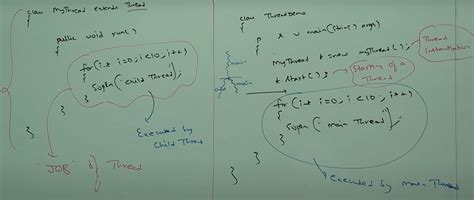 class MyThread extends Thread
{
public void run()
{
for(int i=0; i<10; i++)
{
Sopln("child Thread");
}
}
}
Executed by
child Thread
"JOB" of Thread
class ThreadDemo
{
p s v main(String[] args)
{
MyThread t = new MyThread();
Thread
instantiation
t.start();
Starting of a
Thread
for(int i=0; i<10; i++)
{
Sopln("main Thread");
}
}
}
Executed by main Thread